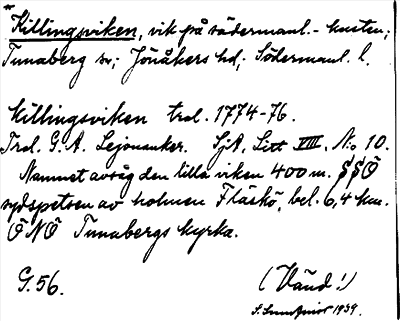 *Killingsviken, vik på södermanl.-kusten;
Tunaberg sn; Jönåkers hd; Södermanl. l.
Killingsviken trol. 1774-76.
Trol. G. A. Lejonanker. SjA, Litt VIII, No 10.
Namnet avsåg den lilla viken 400 m. SSÖ
sydspetsen av holmen Fläskö, bel. 6,4 km.
ÖNÖ Tunabergs kyrka.
G. 56. (Vänd!)
S. 1939.